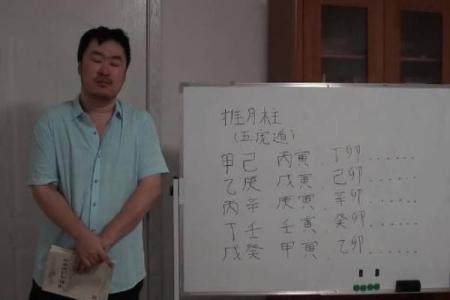 推月柱
(五虎遁)
甲己 丙寅 丁卯......
乙庚 戊寅 己卯......
丙辛 庚寅 辛卯......
丁壬 壬寅 癸卯......
戊癸 甲寅 乙卯......